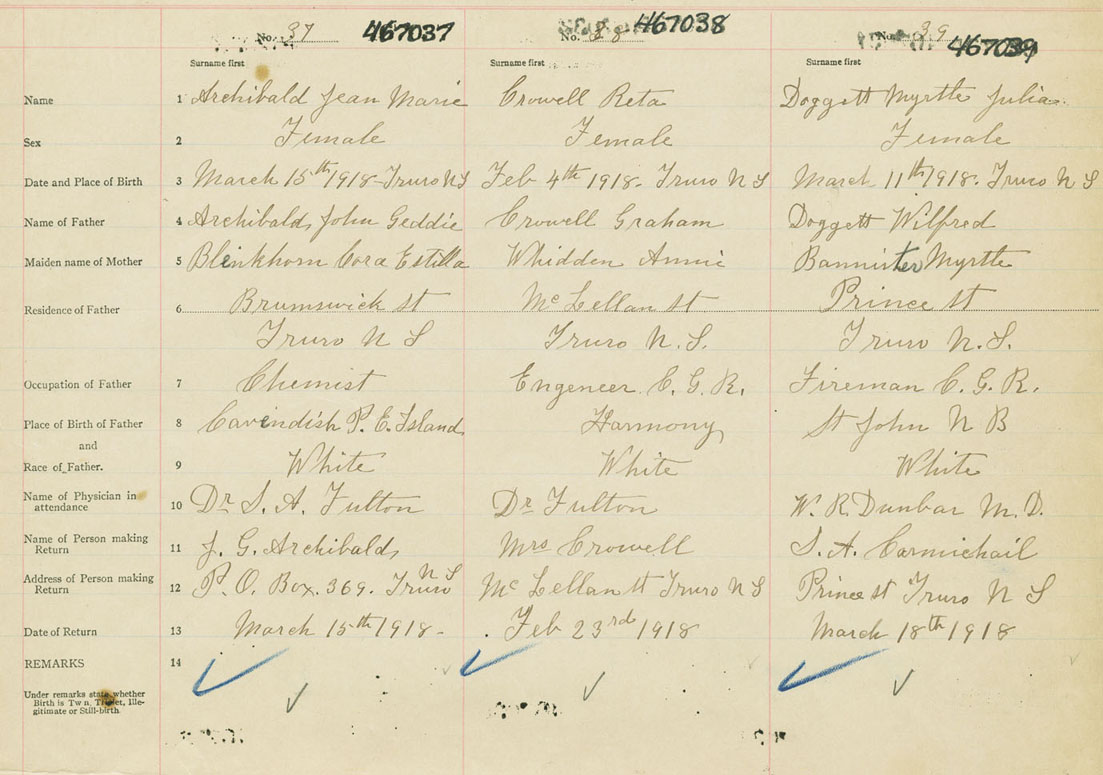 No. 37 467037 No. 38 467038 No. 39 467039
Surname first Surname first Surname first
Name 1 Archibald Jean Marie Crowell Reta Doggett Myrtle Julia
Sex 2 Female Female Female
Date and Place of Birth 3 March 15th 1918 - Truro N S Feb 4th 1918. Truro N S March 11th 1918. Truro N S
Name of Father 4 Archibald, John Geddie Crowell Graham Doggett Wilfred
Maiden name of Mother 5 Blenkhorn Cora Estilla Whidden Annie Bannister Myrtle
Residence of Father 6 Brunswick st McLellan st Prince st
Truro N S Truro N.S. Truro N.S.
Occupation of Father 7 Chemist Engeneer C.G.R. Fireman C.G.R.
Place of Birth of Father 8 Cavendish P.E. Island Harmony St John N B
and
Race of Father. 9 White White White
Name of Physician in
attendance 10 Dr S. A. Fulton Dr Fulton W. R. Dunbar M.D.
Name of Person making
Return 11 J. G. Archibald Mrs Crowell S. A. Carmichail
Address of Person making
Return 12 P.O. Box. 369. Truro N S McLellan st Truro N S Prince st Truro N S
Date of Return 13 March 15th 1918 - Feb 23rd 1918 March 18th 1918
REMARKS 14
Under remarks state whether
Birth is Twin, Triplet, Ille-
gitimate or Still-birth.